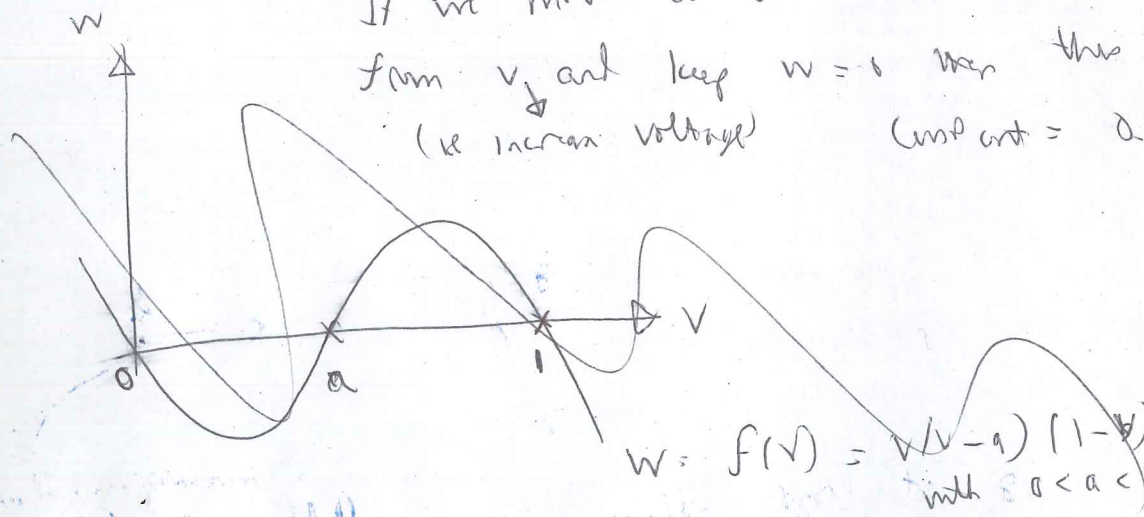 If we
from v, and keep w = 0 then this
(ie increase voltage) constant = a
w
v
0 a 1
w = f(v) = v(v-a)(1-v)
with 0 < a <